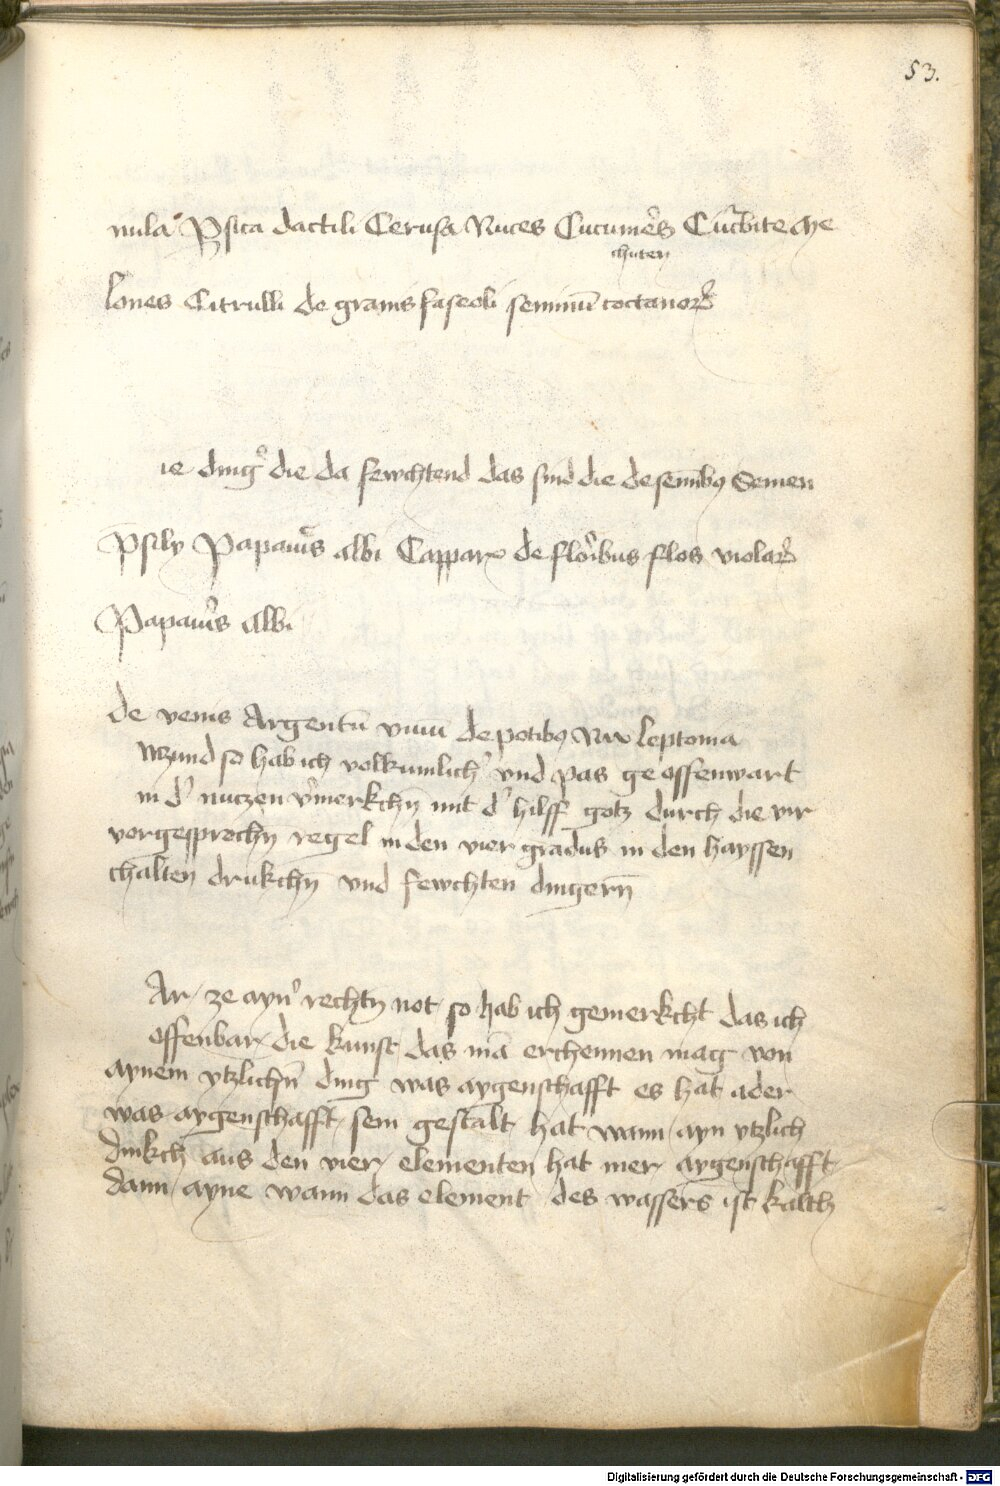 53.
nula Psica dactili Cerusa Nuces Cucumeřs Cucbite Me
chuten
lones Citrulli de granis faseoli seminū coctanoꝝ
ie dingͤ die da fewchtend das sind die de semībꝯ Semen
Psily Papaūs albi Capparꝫ de floribus flos violaꝝ
Papauͤs Albi
de venis Argentū viuū de potibꝯ Nix leptoma
Wzund so hab ich volkumlich vnd pas geoffenwart
in dͤ nuczen vͤmerkchn̄ mit dͤ hilff gotz durch die vir
vorgesprochn̄ regel in den vier gradus in den hayssen
chalten drukchn̄ vnd fewchten dingern̄
Ar ze aynͤ rechtn̄ not so hab ich gemerkcht das ich
offenbar die kunst das mā erchennen mag von
aynem ytzlichn̄ ding was aygenschafft es hat ader
was aygenschafft sein gestalt hat wann ayn ytzlich
dinkch aus den vier elementen hat mer aygenschafft
dann ayne wann das element des wassers ist kalth
Digitalisierung gefördert durch die Deutsche Forschungsgemeinschaft - DFG